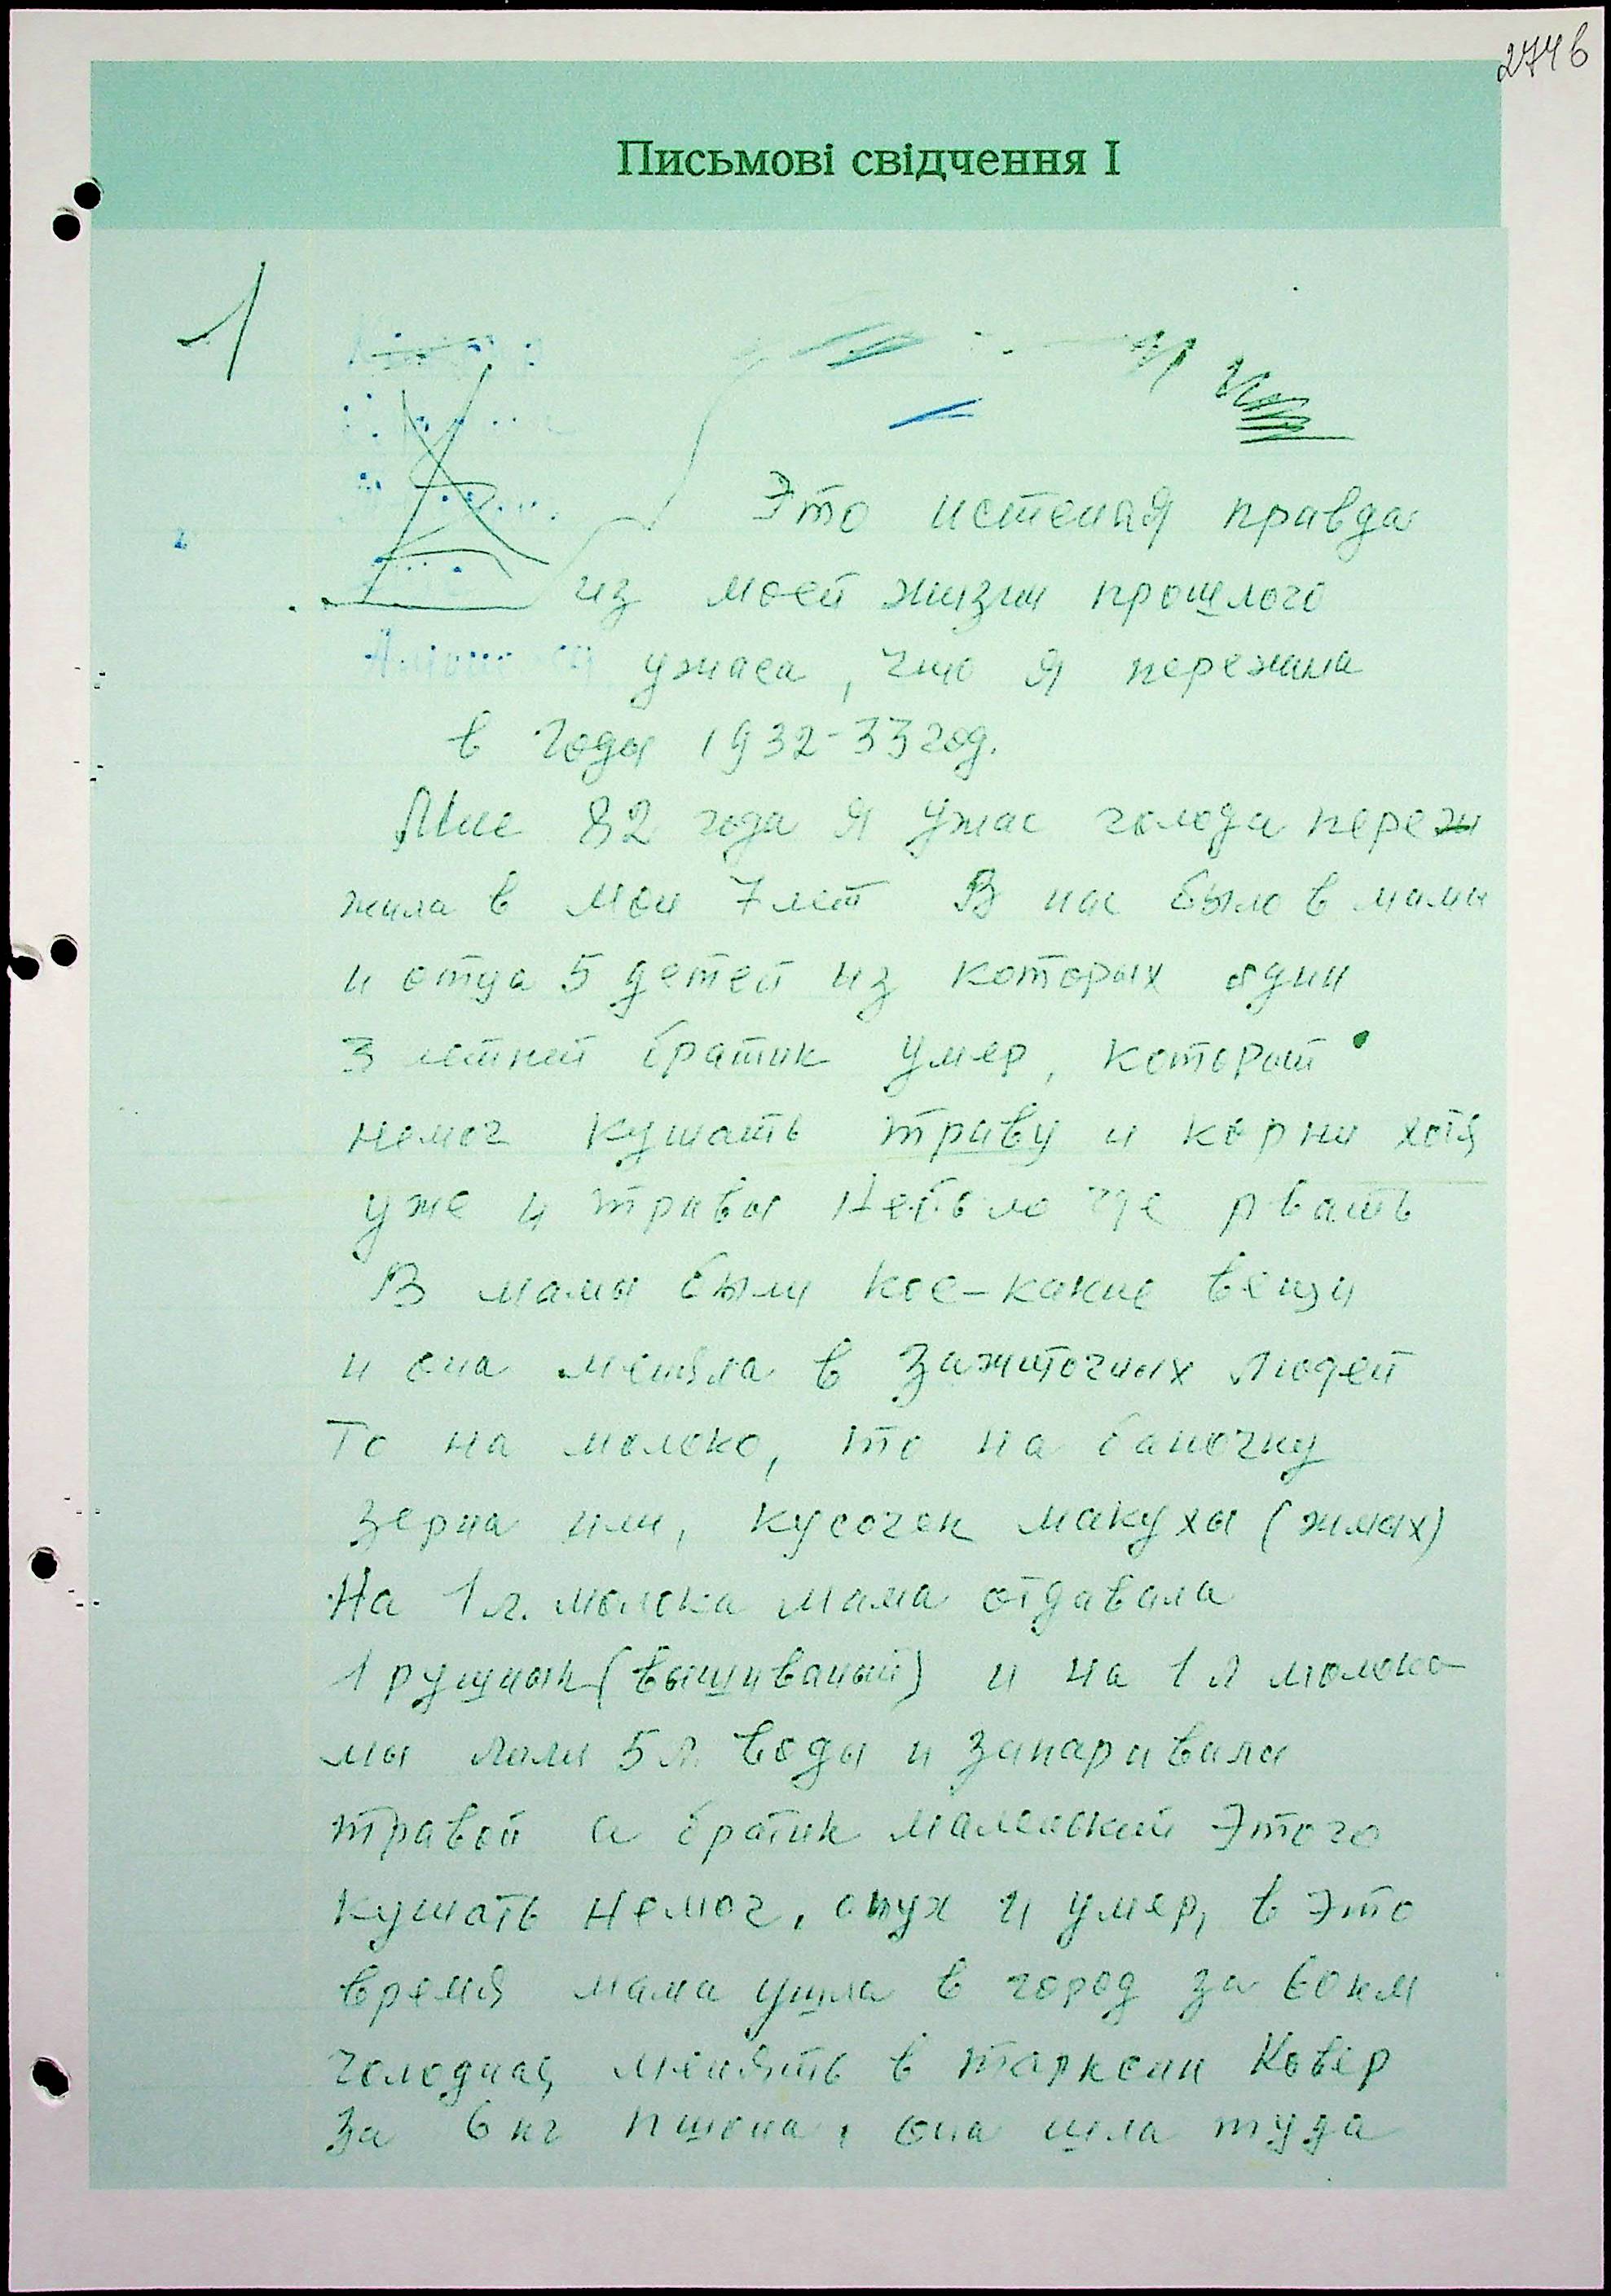 274в
Письмові свідчення І
1
Это истеная правда
из моей жизни прошлого
ужаса, что я пережила
в годы 1932-33 год.
Мне 82 года я ужас голода переж
жила в мои 7 лет В нас было в мамы
и отца 5 детей из которых один
3 летний братик умер, который
немог кушать траву и корни хотя
уже и травы небыло где рвать
В мамы были кое-какие вещи
и она меняла в зажиточных людей
То на молоко, то на баночку
зерна или, кусочек макухи (жмых)
На 1 л. молока мама отдавала
1 рушнык (вышиваный) и на 1 л молока
мы лали 5 л. воды и запаривали
травой а братик маленький этого
кушать немог, опух и умер, в это
время мама ушла в город за 60 км
голодная менять в тарксин Ковер
За 6 кг пшена, она шла туда